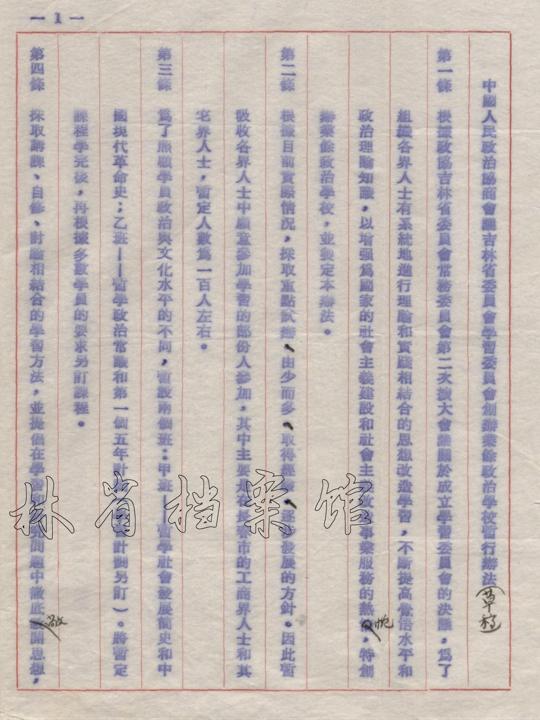 一1一
中國人民政治協商會議吉林省委員會學習委員會創辦業餘政治學校暫行辦法(草稿)
第一條 根據政協吉林省委員會常務委員會第二次擴大會議關於成立學習委員會的決議,爲了
組織各界人士有系統地進行理論和實踐相結合的思想改造學習,不斷提高覺悟水平和
政治理論知識,以增强爲國家的社會主義建設和社會主義改造事業服務的熱忱,特創
辦業餘政治學校,並製定本辦法。
第二條 根據目前實際情況,採取重點試辦、由少而多、取得經驗、逐步發展的方針。因此暫
吸收各界人士中願意參加學習的部份人參加,其中主要是在長春市的工商界人士和其
宅界人士,暫定人數爲一百人左右。
第三條 爲了照顧學員政治與文化水平的不同,暫設兩個班:甲班——暫學社會發展簡史和中
國現代革命史;乙班——暫學政治常識和第一個五年計劃(計劃另訂)。將暫定
課程學完後,再根據多數學員的要求另訂課程。
第四條 採取聽課、自修、討論相結合的學習方法,並提倡在學習問題中徹底敞開思想,
林省档案馆